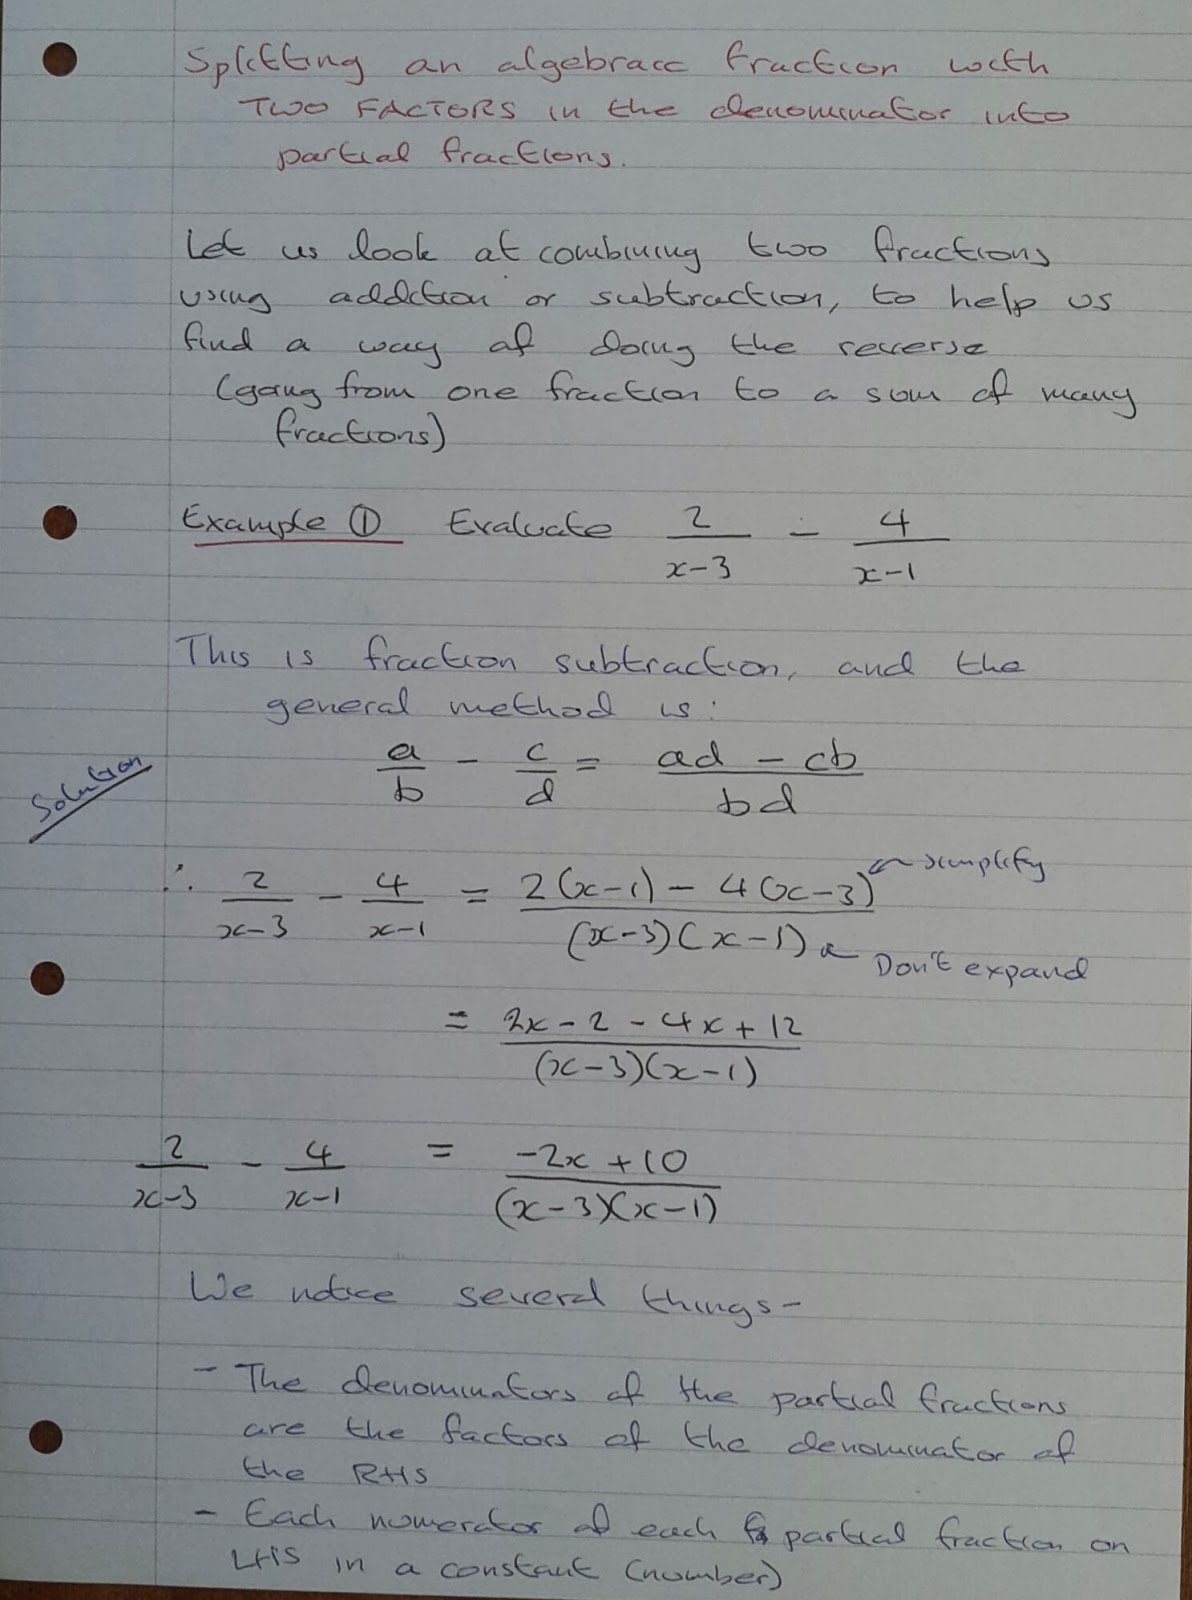 Splitting an algebraic fraction with
TWO FACTORS in the denominator into
partial fractions.
Let us look at combining two fractions
using addition or subtraction, to help us
find a way of doing the reverse
(going from one fraction to a sum of many
fractions)
Example ① Evaluate 2/(x-3) - 4/(x-1)
This is fraction subtraction, and the
general method is:
Solution
a/b - c/d = (ad - cb)/(bd)
∴ 2/(x-3) - 4/(x-1) = (2(x-1) - 4(x-3))/((x-3)(x-1))
simplify
Don't expand
= (2x - 2 - 4x + 12)/((x-3)(x-1))
2/(x-3) - 4/(x-1) = (-2x + 10)/((x-3)(x-1))
We notice several things -
- The denominators of the partial fractions
are the factors of the denominator of
the RHS
- Each numerator of each partial fraction on
LHS in a constant (number)